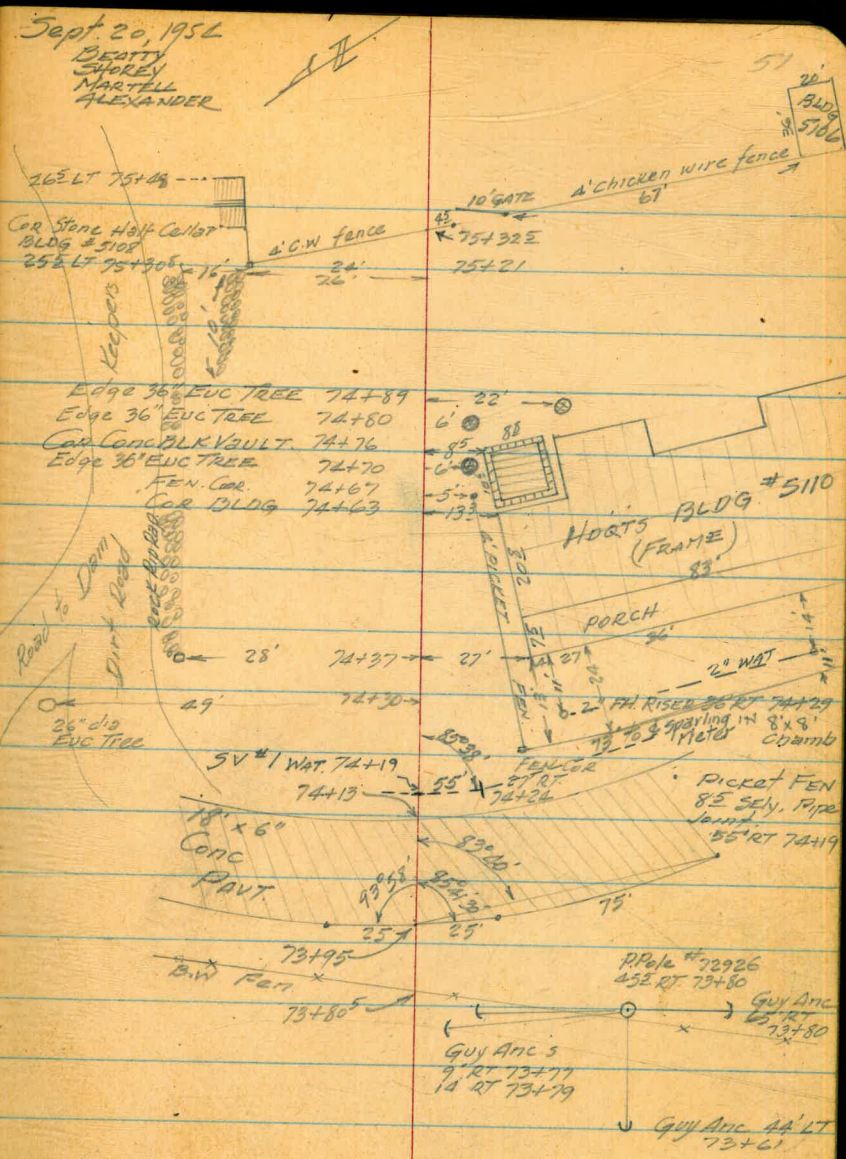 Sept. 20, 195
BEATTY
SHOREY
MARTELL
ALEXANDER
51
20'
BLDG
5106
36'
26⁵ LT 75+48
10' GATE
4' Chicken wire fence
67'
4⁵
75+32⁵
4' C.W fence
Cor Stone Half Cellar
BLDG #5108
25⁵ LT 75+30⁸
16'
24'
26'
75+21
10'
Keepers
Edge 36" EUC TREE 74+89
22'
Edge 36" EUC TREE 74+80
6'
Cor Conc BLK Vault. 74+76
8⁵
8⁸
Edge 36" EUC TREE 74+70
6'
FEN. COR. 74+67
5'
COR BLDG 74+63
13³
HDQTS BLDG #5110
(FRAME)
83'
4' PICKET
FEN
20⁸
PORCH
36'
Road to Dam
Dirt Road
Rock Rip Rap
28'
74+37
27'
7⁵
27
14'
11'
2" WAT
49'
74+30
11'
13'
24
2" FH. RISER 36' RT 74+29
26" dia
Euc Tree
73' to Sparling IN 8'x8'
Meter Chamb
85°38'
SV #1 WAT. 74+19
FEN COR
27' RT.
74+24
55'
74+13
Picket FEN
8⁵ Sely. Pipe
Joint.
55' RT 74+19
18' x 6"
Conc
PAVT.
83° 40'
93°58'
85°41'30"
75'
25
25'
73+95
B.W Fen
73+80⁵
P.Pole #72926
45⁵ RT 73+80
Guy Anc
65' RT
73+80
Guy Anc s
9' RT 73+77
14' RT 73+79
Guy Anc 44' LT
73+61